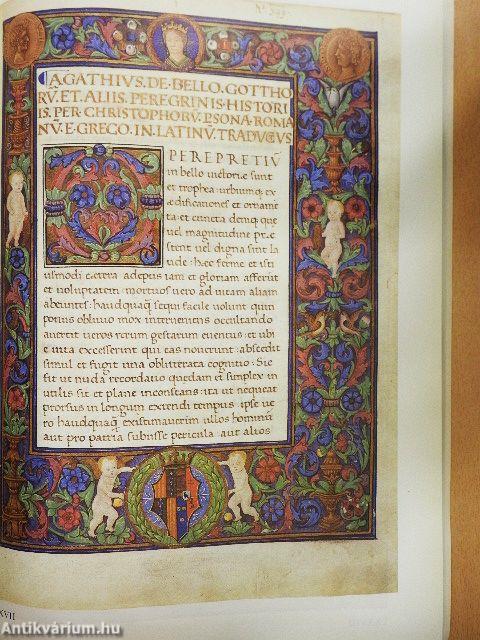 AGATHIVS. DE. BELLO. GOTTHO
RṼ. ET. ALIIS. PEREGRINIS. HISTORI
IS. PER. CHRISTOPHORṼ. PSONA. ROMA
NṼ. E. GRECO. IN. LATINṼ. TRADVCTVS
PEREPRETIṼ
in bello uictoriæ sunt
et trophea urbiumq; ex
ædificationes et ornamẽ
ta et cuncta deniq; que
uel magnitudine præ
stent uel digna sint la
ude: hæc ferme et isti
usmodi cetera adeptus iam et gloriam afferũt
et uoluptatem mortuos uero ad uitam aliam
abeuntes: haudquaq̃ sequi facile uolunt quin
potius obliuio mox interueniens occultando
auertit ueros rerum gestarum euentus: et ubi
e uita excesserint qui eas nouerunt abscedit
simul et fugit una obliterata cognitio: Sic
fit ut nuda recordatio quædam et simplex in
utilis sit et plane inconstans: ita ut nequeat
prorsus in longum extendi tempus ipse ue
ro haudquaq̃ existimauerim ullos hominũ
aut pro patria subiisse pericula aut alios
XVII
Antikvárium.hu